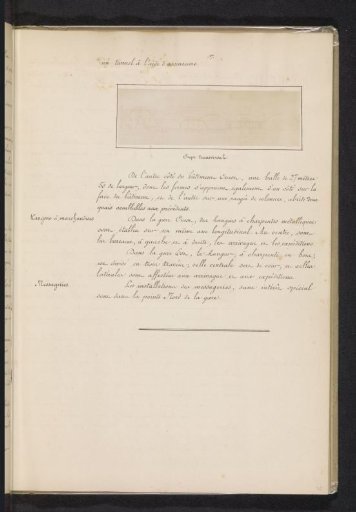 un tunnel à l'aide d'ascenseurs.
Coupe transversale
De l'autre côté du bâtiment Ouest, une halle de 27 mètres
50 de largeur, dont les fermes s'appuient également d'un côté sur la
face du bâtiment, et de l'autre sur une rangée de colonnes, abrite deux
quais semblables aux précédents.
Hangars à marchandises
Dans la gare Ouest, des hangars à charpentes métalliques
sont établis sur un même axe longitudinal. Au centre, sont
les bureaux, à gauche et à droite, les arrivages et les expéditions.
Dans la gare Est, le hangar, à charpente en bois,
est divisé en trois travées; celle centrale sert de cour, et celles
latérales sont affectées aux arrivages et aux expéditions.
Messageries
Les installations des messageries, sans intérêt spécial
sont dans la pointe Nord de la gare.